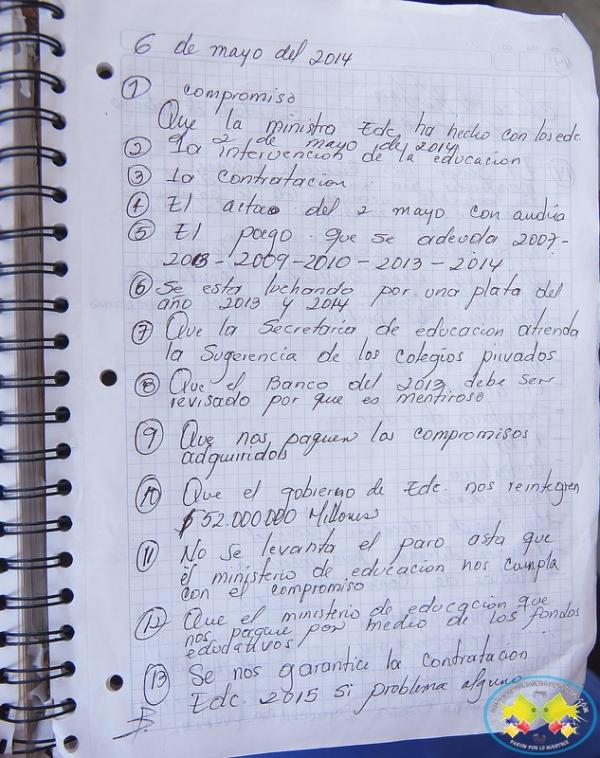 6 de mayo del 2014
① compromiso
Que la ministra Edc. ha hecho con los edc.
el 2 de mayo de 2014
② La intervencion de la educacion
③ La contratacion.
④ El acta del 2 mayo con audio
⑤ El pago que se adeuda 2007-
2008-2009-2010-2013-2014
⑥ Se esta luchando por una plata del
año 2013 y 2014
⑦ Que la Secretaria de educacion atienda
la Sugerencia de los colegios privados
⑧ Que el Banco del 2013 debe ser
revisado por que es mentiroso
⑨ Que nos paguen los compromisos
adquiridos
⑩ Que el gobierno de Edc. nos reintegren
$52.000.000 Millones
⑪ No se levanta el paro asta que
el ministerio de educacion nos cumpla
con el compromiso
⑫ Que el ministerio de educacion que
nos pague por medio de los fondos
edudativos
⑬ Se nos garantice la contratacion
Edc. 2015 si problema alguno
PASION POR LO NUESTRO